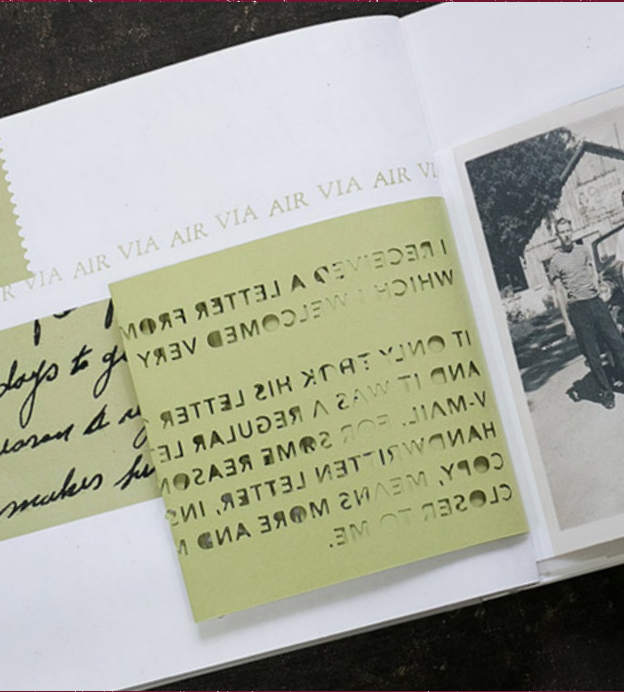 VIA AIR VIA AIR VIA AIR VIA AIR VI
days to
makes
I RECEIVED A LETTER FROM
WHICH I WELCOMED VERY
IT ONLY TOOK HIS LETTER
AND IT WAS A REGULAR LET
V-MAIL. FOR SOME REASON
HANDWRITTEN LETTER, INS
COPY, MEANS MORE AND
CLOSER TO ME.